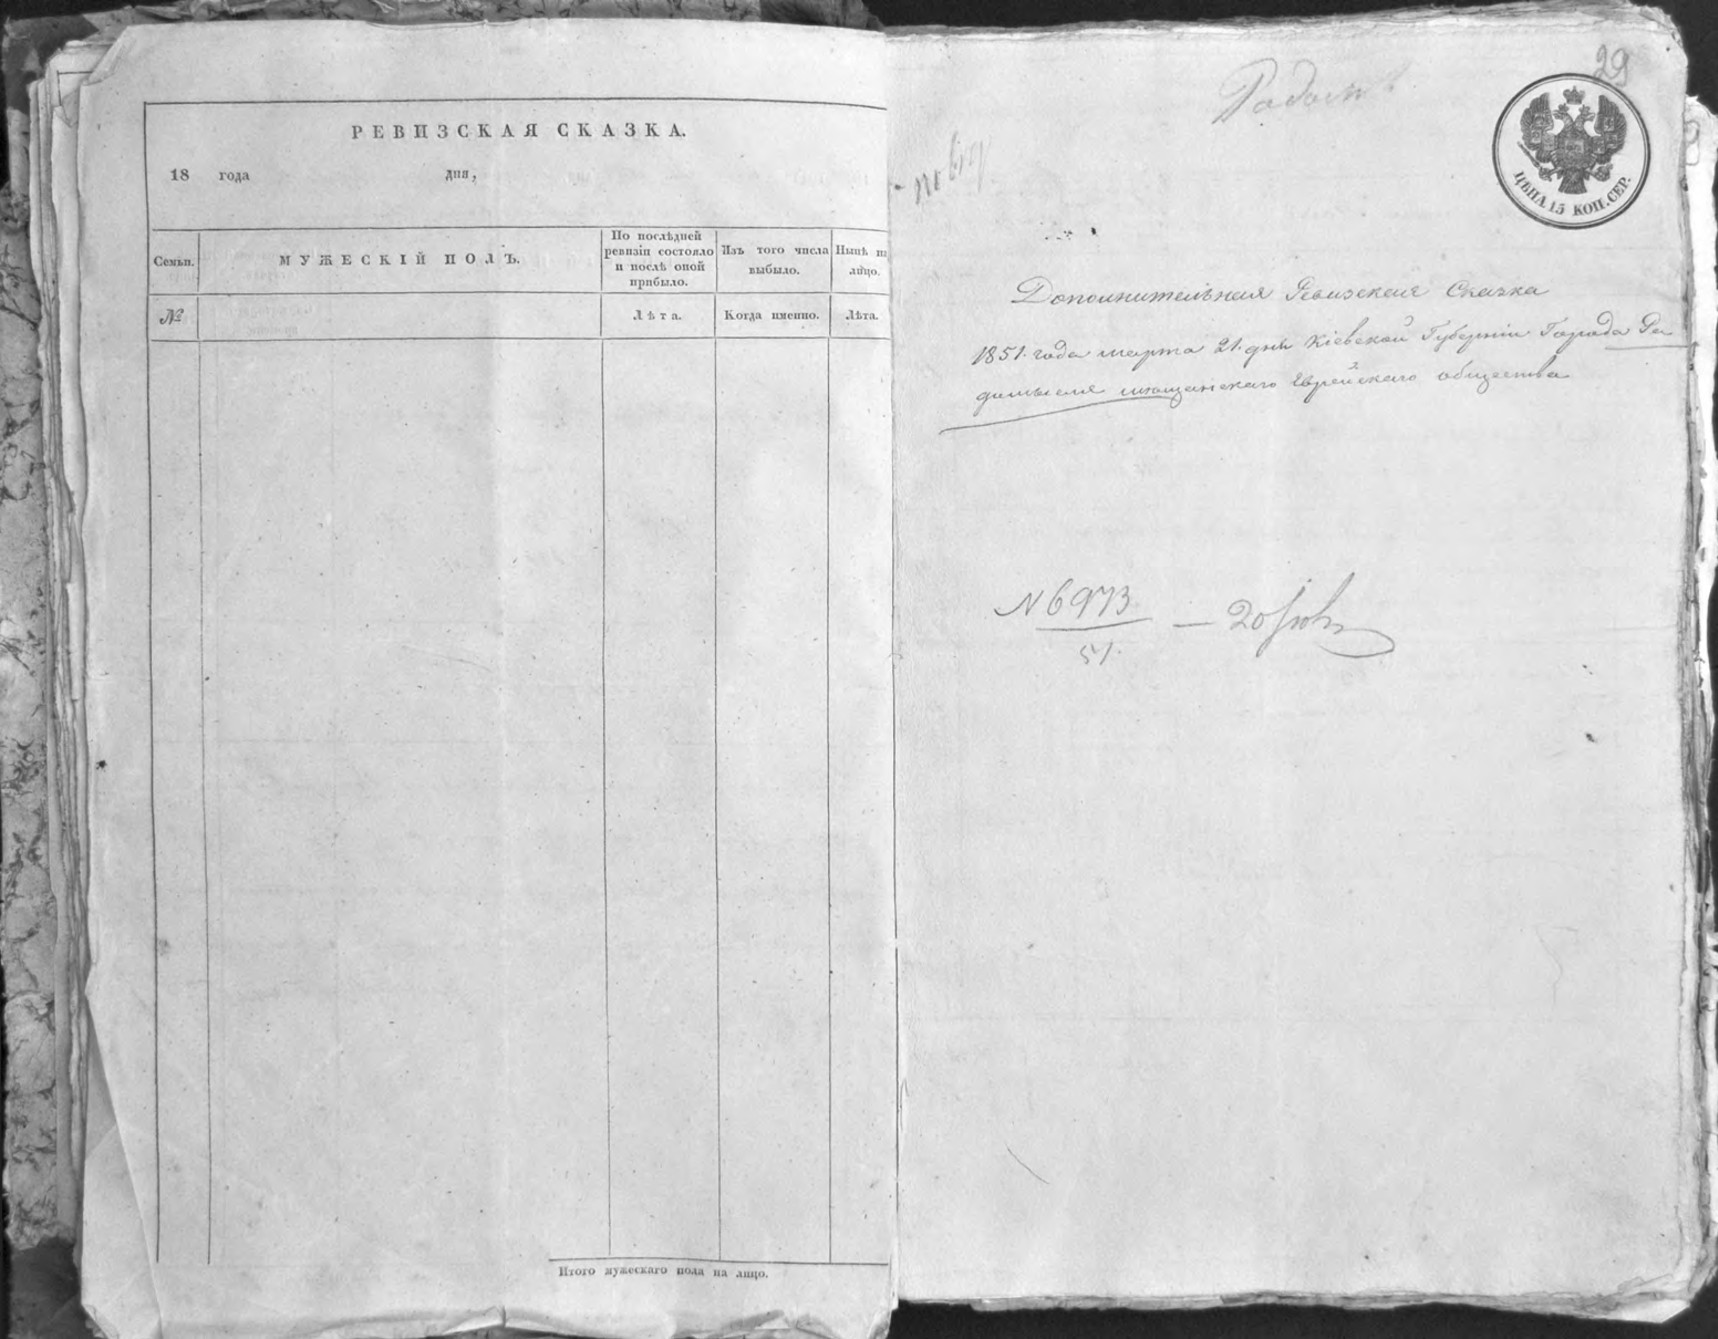 РЕВИЗСКАЯ СКАЗКА.
18 года дня,
Семьи.
МУЖЕСКІЙ ПОЛЪ.
По послѣдней
ревизіи состояло
и послѣ оной
прибыло.
Изъ того числа
выбыло.
Нынѣ на
лицо.
№
Лѣта.
Когда именно.
Лѣта.
Итого мужескаго пола на лицо.
29
ЦѢНА 15 КОП. СЕР.
Дополнительная Ревизская Сказка
1851. года марта 21. дня Кіевской Губерніи Города Ра
домысля мѣщанскаго Еврейскаго общества
N 6973
51.